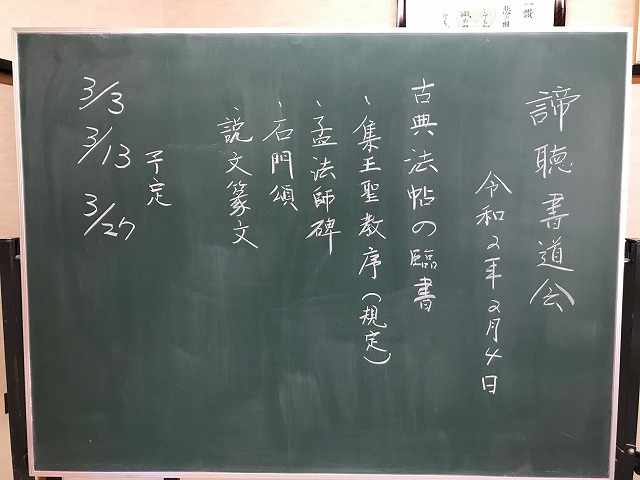 諦聴書道会
令和2年2月4日
古典法帖の臨書
、集王聖教序(規定)
、孟法師碑
、石門頌
、説文篆文
予定
3/3
3/13
3/27